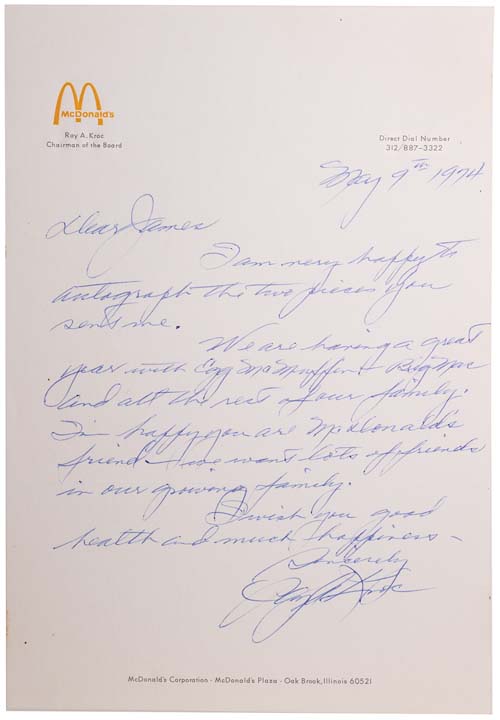 McDonald's
Ray A. Kroc
Chairman of the Board
Direct Dial Number
312/887-3322
May 9th 1974
Dear James
I am very happy to
autograph the two pieces you
sent me.
We are having a great
year with Egg McMuffin + Big Mac
and all the rest of our family.
I'm happy you are McDonald's
friend - we want lots of friends
in our growing family.
I wish you good
health and much happiness -
Sincerely
Ray A Kroc
McDonald's Corporation - McDonald's Plaza - Oak Brook, Illinois 60521